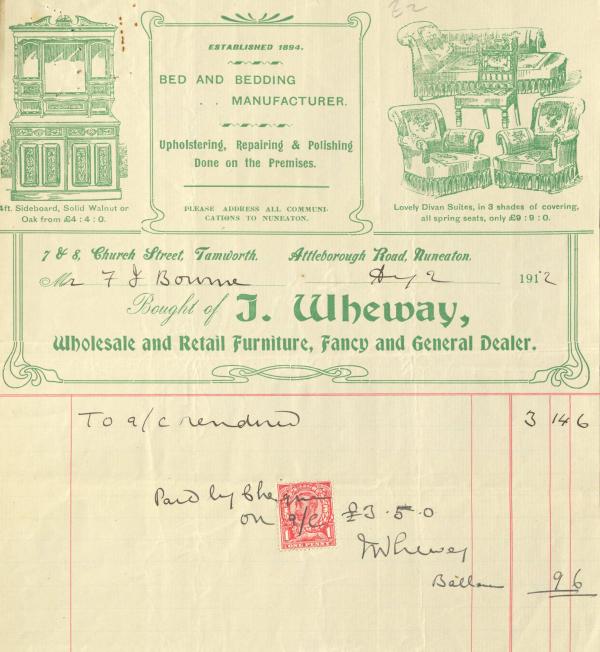 £2
ESTABLISHED 1894.
BED AND BEDDING
. . MANUFACTURER.
Upholstering, Repairing & Polishing
Done on the Premises.
PLEASE ADDRESS ALL COMMUNI-
CATIONS TO NUNEATON.
4ft. Sideboard, Solid Walnut or
Oak from £4 : 4 : 0.
Lovely Divan Suites, in 3 shades of covering,
all spring seats, only £9 : 9 : 0.
7 & 8, Church Street, Tamworth. Attleborough Road, Nuneaton.
Mr F J Bourne 2 1912
Bought of J. Wheway,
Wholesale and Retail Furniture, Fancy and General Dealer.
To a/c rendered 3 14 6
Paid by Cheque
on a/c £3 . 5 . 0
ONE PENNY
J Wheway
Ballance 9 6